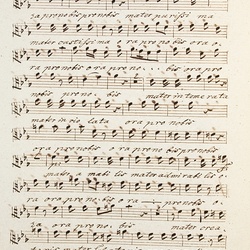 ra pro nobis pro nobis mater purissi ma
mater castissima ora pro nobis ora o.
ra pro nobis ora pro no. bis ora pro
nobis pro no. bis mater intemerata
mater invio lata ora pro nobis
ora pro nobis ora pro no bis pro nobis
mater a mabi lis mater admirabi lis o.
ra ora pro nobis ora pro nobis o.
ra ora pro no. bis mater crea